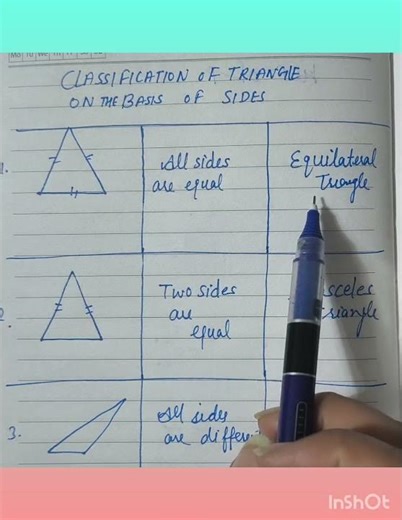 CLASSIFICATION OF TRIANGLE
ON THE BASIS OF SIDES
1.
All sides
are equal
Equilateral
Triangle
2
Two sides
are
equal
sceles
riangle
3.
All sides
are differe
InShOt